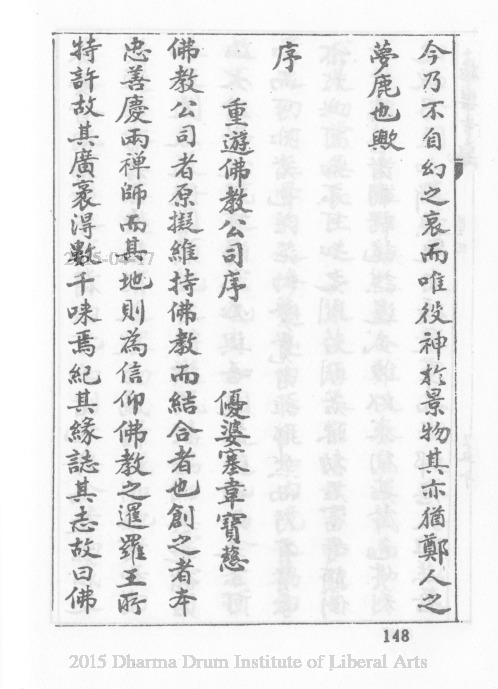 今乃不自幻之哀而唯役神於景物其亦猶鄭人之
夢鹿也歟
序
重遊佛教公司序
優婆塞韋寶慈
佛教公司者原擬維持佛教而結合者也創之者本
忠善慶兩禅師而其地則為信仰佛教之暹羅王所
特許故其廣袤得數千咪焉紀其緣誌其志故曰佛
148
2015 Dharma Drum Institute of Liberal Arts